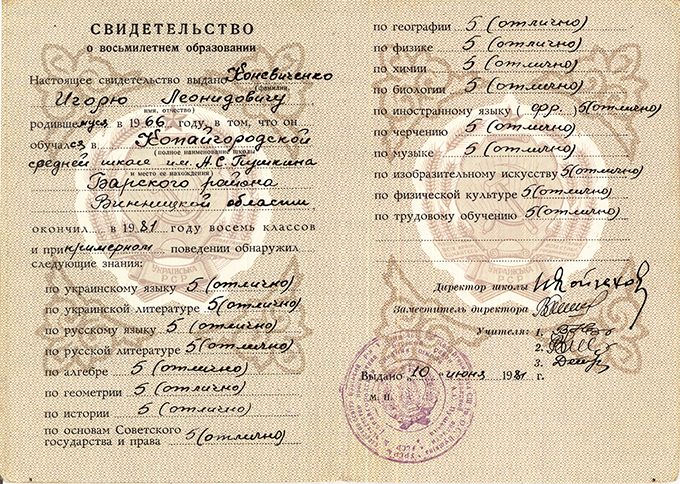 СВИДЕТЕЛЬСТВО
о восьмилетнем образовании
Настоящее свидетельство выдано Коневиченко
(фамилия,
Игорю Леонидовичу
имя, отчество)
родившемуся в 1966 году, в том, что он
обучался в Копайгородской
(полное наименование школы
средней школе им. А.С. Пушкина
и место ее нахождения)
Барского района
Винницкой области,
окончил в 1981 году восемь классов
и при примерном поведении обнаружил
следующие знания:
по украинскому языку 5 (отлично)
по украинской литературе 5 (отлично)
по русскому языку 5 (отлично)
по русской литературе 5 (отлично)
по алгебре 5 (отлично)
по геометрии 5 (отлично)
по истории 5 (отлично)
по основам Советского
государства и права 5 (отлично)
УКРАЇНСЬКА
РСР
по географии 5 (отлично)
по физике 5 (отлично)
по химии 5 (отлично)
по биологии 5 (отлично)
по иностранному языку ( фр. 5 (отлично)
по черчению 5 (отлично)
по музыке 5 (отлично)
по изобразительному искусству 5 (отлично)
по физической культуре 5 (отлично)
по трудовому обучению 5 (отлично)
УКРАЇНСЬКА
РСР
Директор школы
Заместитель директора
Учителя: 1.
2.
3.
Выдано „ 10 “ июня 1981 г.
м. п.